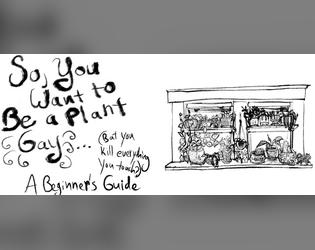 So, You
Want to
Be a Plant
Gay...
(But you
Kill everything
You touch)
A Beginner's Guide